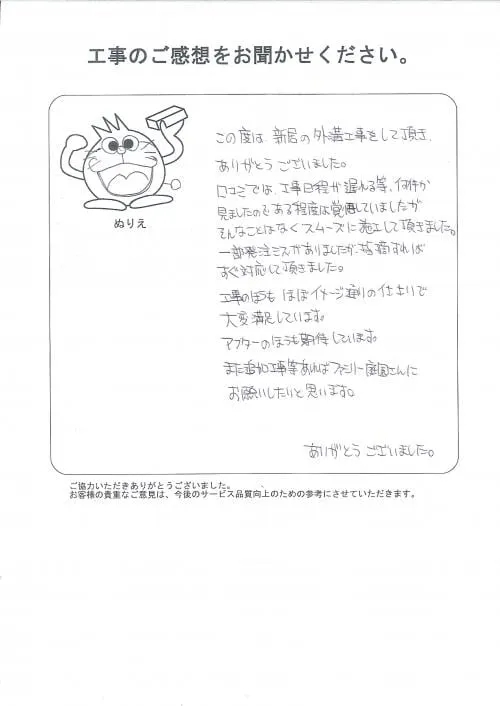 工事のご感想をお聞かせください。
ぬりえ
この度は、新居の外溝工事をして頂き、
ありがとうございました。
口コミでは、工事日程が遅れる等、何件か
見ましたので ある程度は覚悟していましたが
そんなことはなくスムーズに施工して頂きました。
一部発注ミスがありましたが、指摘すれば
すぐ対応して頂きました。
工事のほうも ほぼイメージ通りの仕上りで
大変満足しています。
アフターのほうも期待しています。
また追加工事等あればファミリー庭園さんに
お願いしたいと思います。
ありがとうございました。
ご協力いただきありがとうございました。
お客様の貴重なご意見は、今後のサービス品質向上のための参考にさせていただきます。